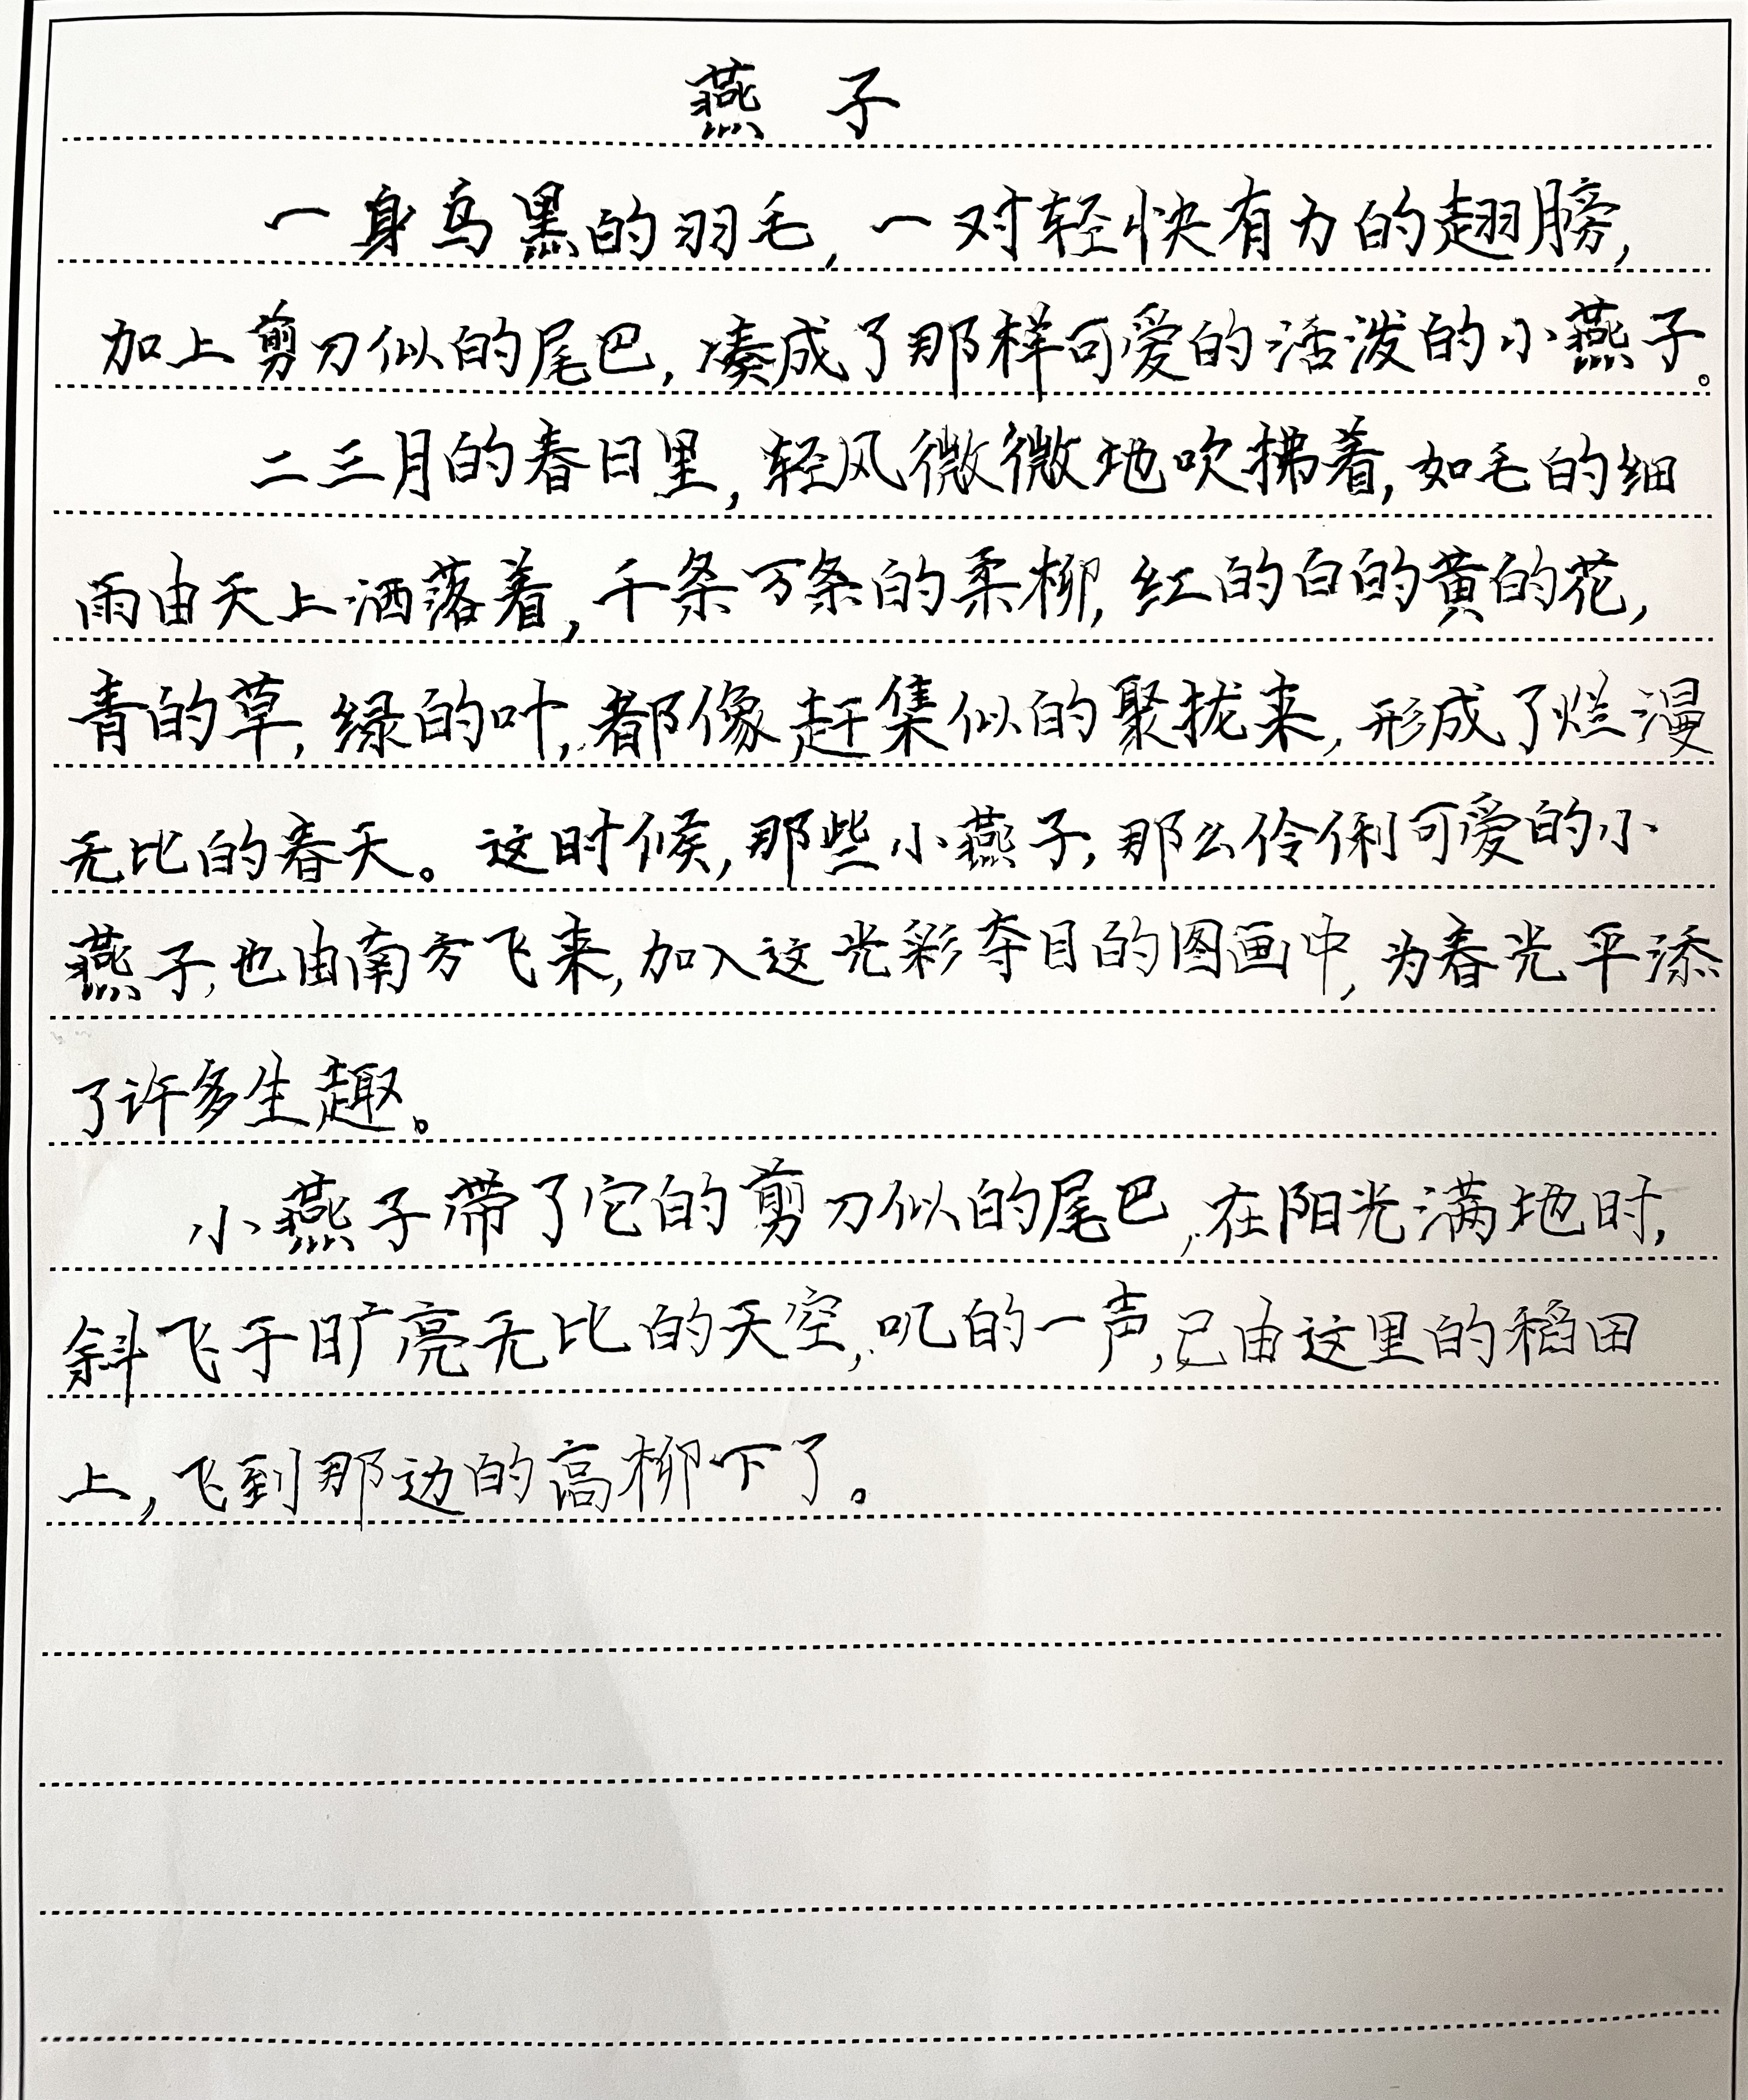 燕子
一身乌黑的羽毛,一对轻快有力的翅膀,
加上剪刀似的尾巴,凑成了那样可爱的活泼的小燕子。
二三月的春日里,轻风微微地吹拂着,如毛的细
雨由天上洒落着,千条万条的柔柳,红的白的黄的花,
青的草,绿的叶,都像赶集似的聚拢来,形成了烂漫
无比的春天。这时候,那些小燕子,那么伶俐可爱的小
燕子,也由南方飞来,加入这光彩夺目的图画中,为春光平添
了许多生趣。
小燕子带了它的剪刀似的尾巴,在阳光满地时,
斜飞于旷亮无比的天空,叽的一声,已由这里的稻田
上,飞到那边的高柳下了。